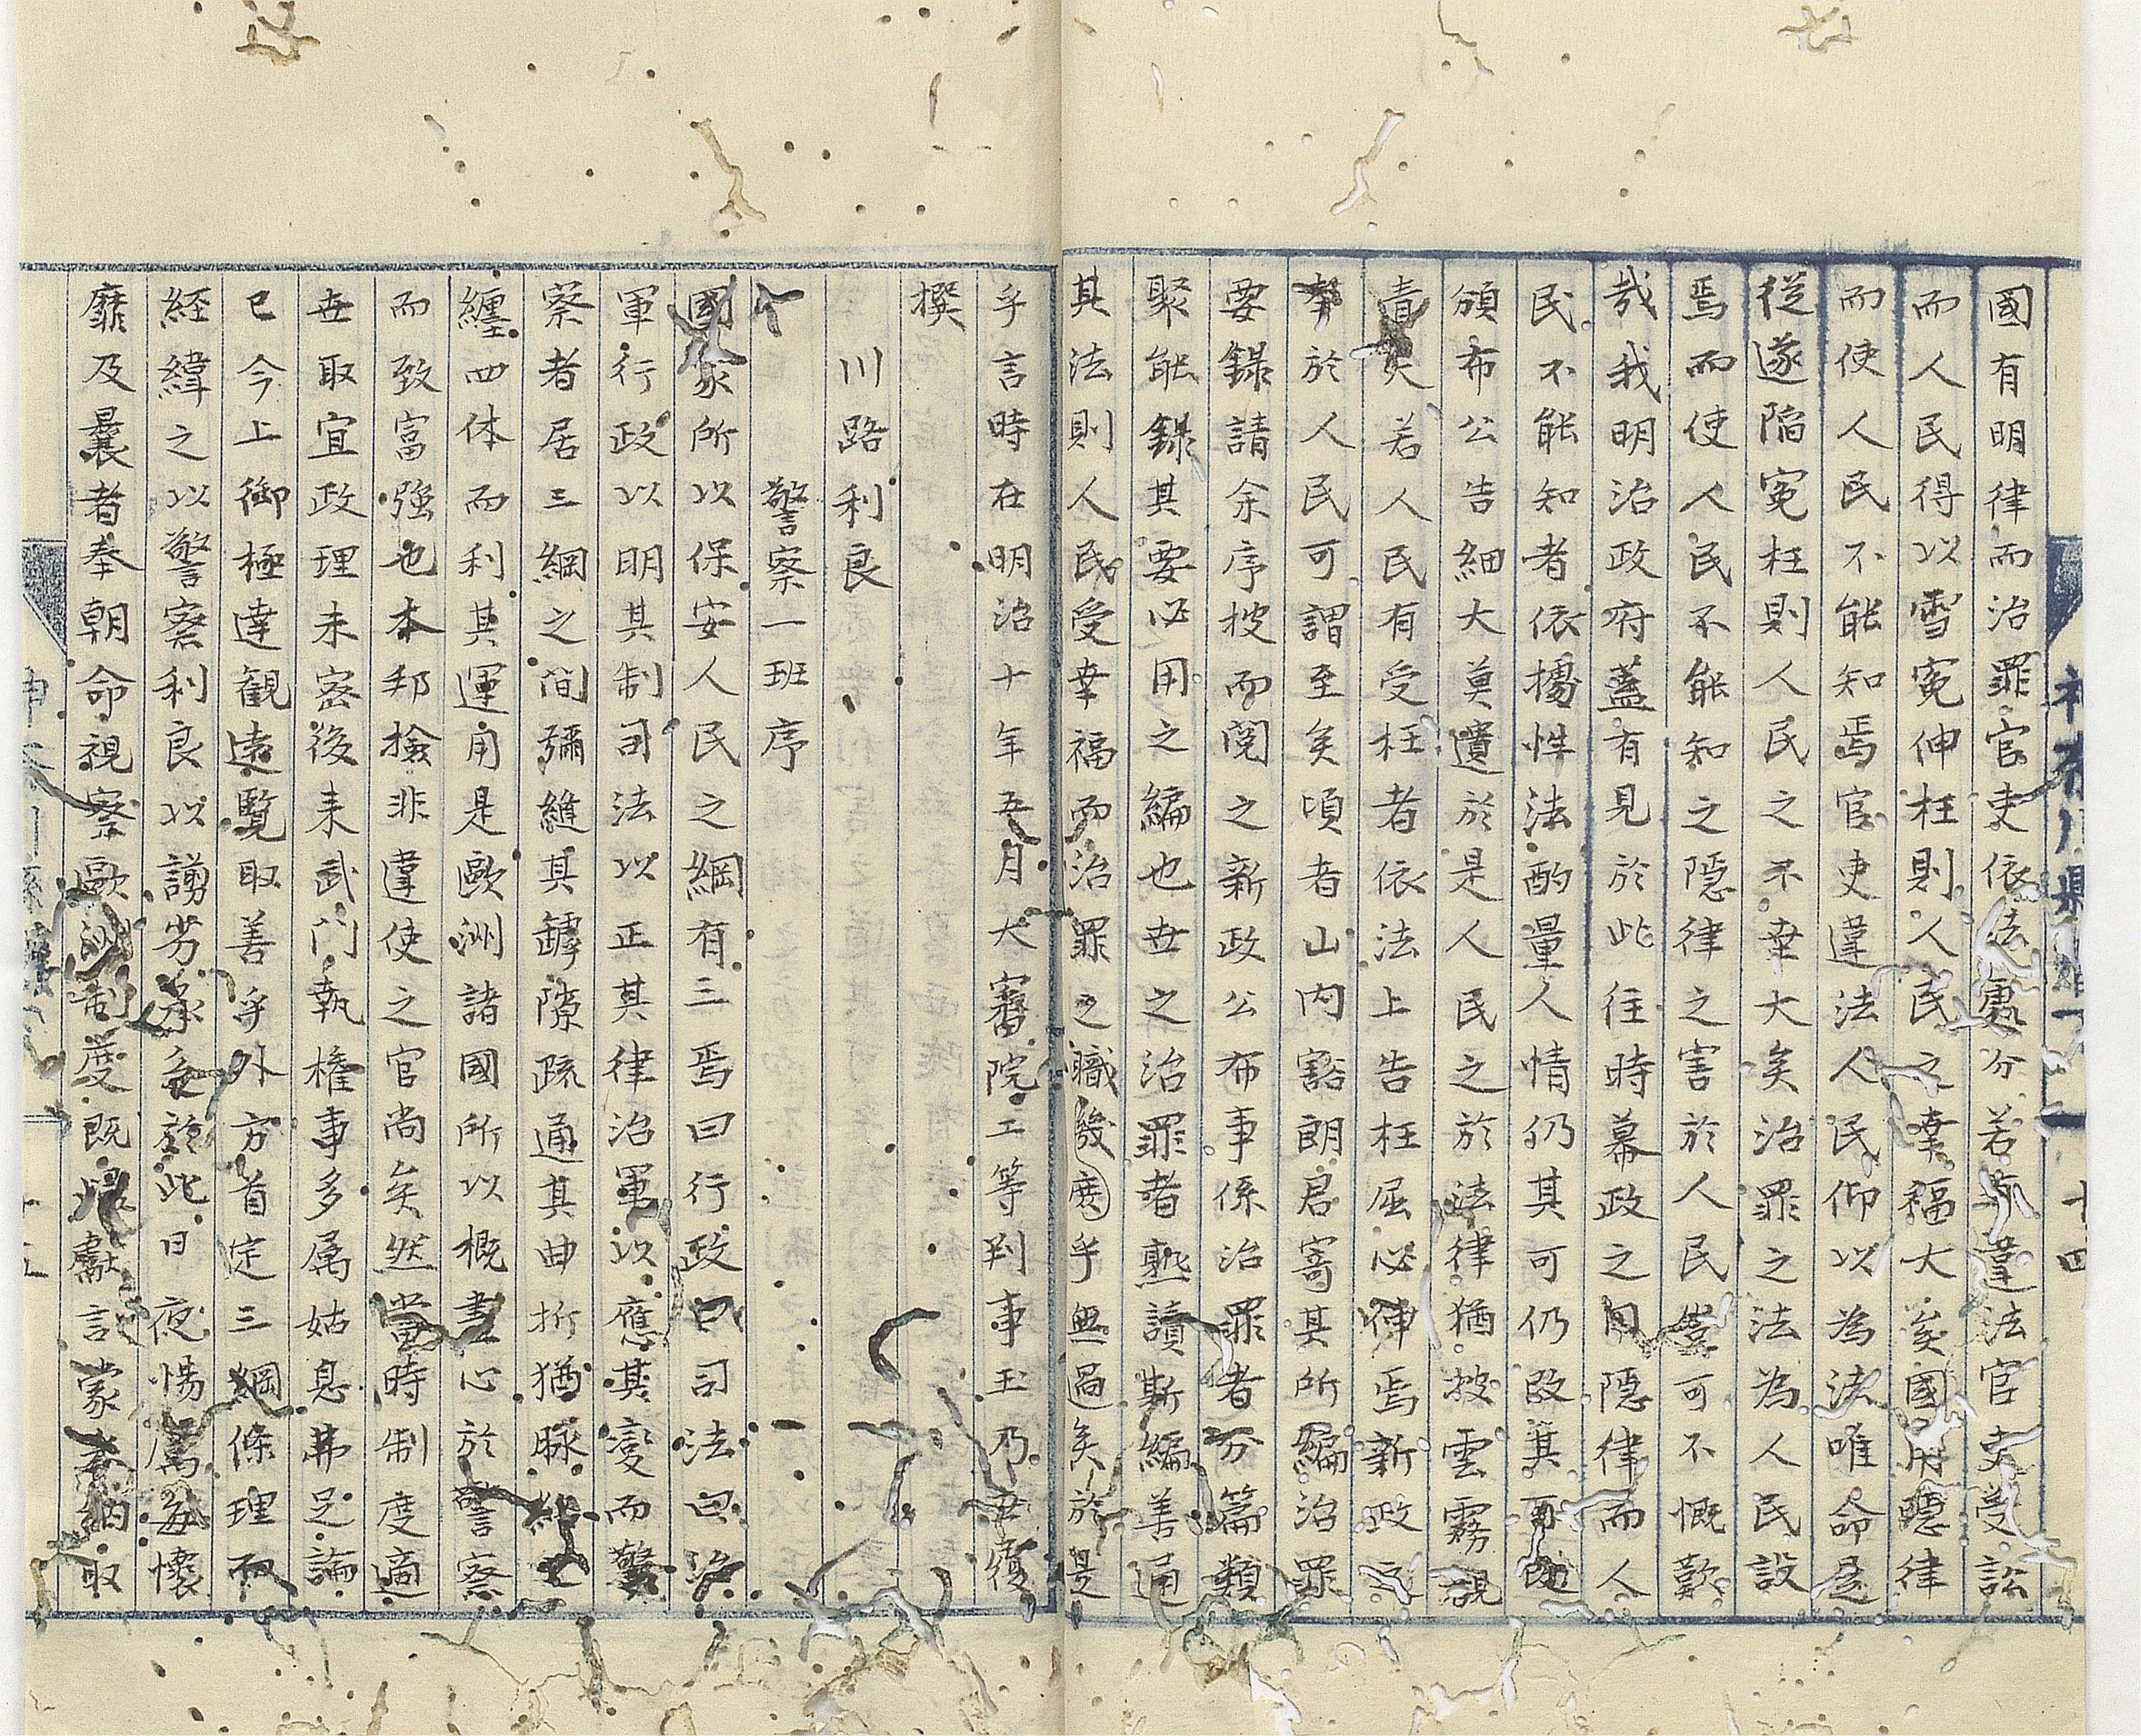 國有明律而治罪官吏依法處分若亦違法官吏受訟
而人民得以雪寃伸枉則人民之幸福大矣國用隠律
而使人民不能知焉官吏違法人民仰以為法唯命是
從遂陥寃枉則人民之不幸大矣治罪之法為人民設
焉而使人民不能知之隠律之害於人民豈可不慨歎
哉我明治政府蓋有見於此往時幕政之用隠律而人
民不能知者依攄性法酌量人情仍其可仍改其可改
頒布公告細大莫遺於是人民之於法律猶披雲霧覩
青天若人民有受枉者依法上告枉屈必伸焉新政之
幸於人民可謂至矣頃者山内豁朗君寄其所編治罪
要録請余序披而閲之新政公布事係治罪者分篇類
聚能録其要必用之編也世之治罪者熟讀斯編善通
其法則人民受幸福而治罪之職幾廃乎無過矣於是
乎言時在明治十年五月大審院二等判事玉乃世履
撰
川路利良
警察一班序
國家所以保安人民之綱有三焉曰行政曰司法曰治
軍行政以明其制司法以正其律治軍以應其變而警
察者居三綱之間彌縫其罅隙疏通其曲折猶脉絡之
纏四体而利其運用是歐洲諸國所以概盡心於警察
而致富强也本邦撿非違使之官尚矣然當時制度適
世取宜政理未密後来武門執權事多属姑息弗足論
已今上御極達観遠覧取善乎外方首定三綱條理而
経緯之以警察利良以謭劣承乏於此日夜惕厲每懷
靡及曩者奉朝命視察歐洲制度既帰獻言蒙採納取
十四